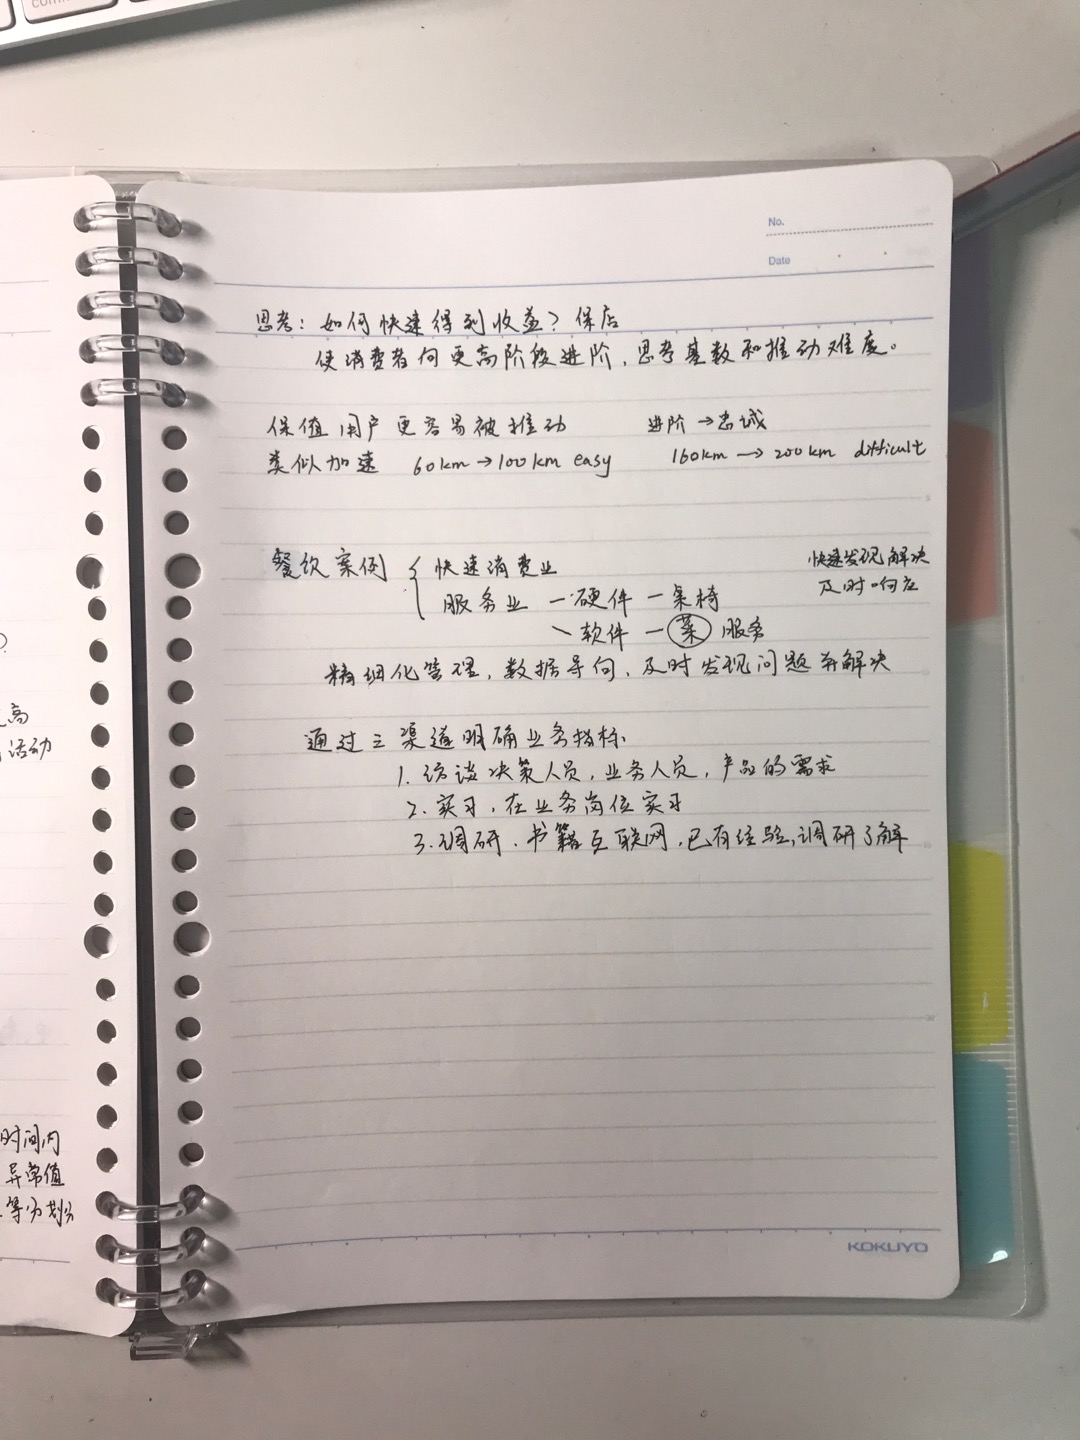 No.
Date
思考：如何快速得到收益？保店
使消费者向更高阶段进阶，思考基数和推动难度。
保值用户更容易被推动 进阶→忠诚
类似加速 60km→100km easy 160km→200km difficult
餐饮案例 快速消费业 快速发现解决
服务业 一硬件 一桌椅 及时响应
软件 一菜 服务
精细化管理，数据导向，及时发现问题并解决
通过三渠道明确业务指标
1. 访谈决策人员，业务人员，产品的需求
2. 实习，在业务岗位实习
3. 调研．书籍互联网，已有经验，调研了解
KOKUYO
高
活动
时间内
异常值
等分划分